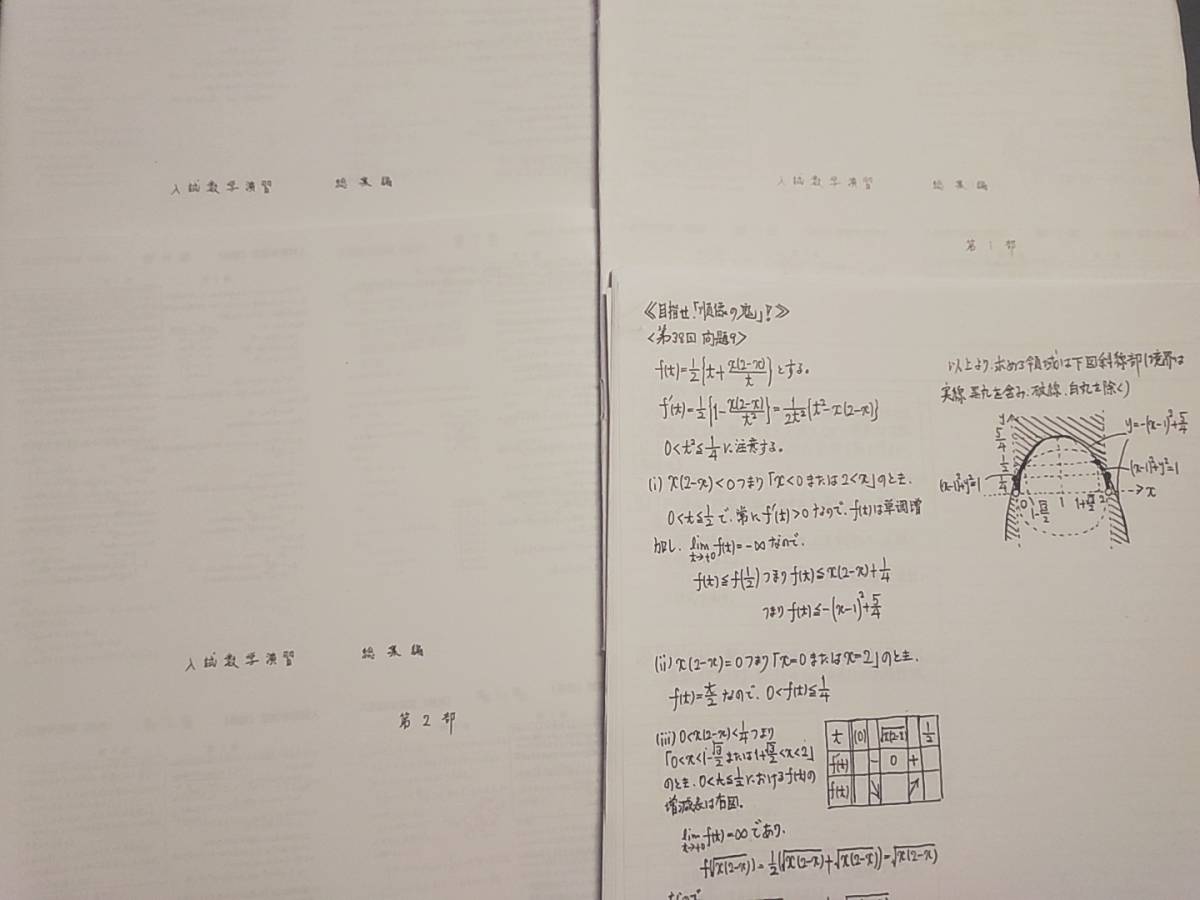 入試数学演習 総集編
入試数学演習 総集編
第2部
入試数学演習 総集編
第1部
≪目指せ!「順像の鬼」!≫
<第38回 問題9>
f(t)=1/2{t+x(2-x)/t}とする。
f'(t)=1/2{1-x(2-x)/t²}=1/2t²{t²-x(2-x)}
0<t²≦1/4に注意する。
(i) x(2-x)<0つまり「x<0または2<x」のとき.
0<t≦1/2で.常にf'(t)>0なので.f(t)は単調増
加し. lim t→+0 f(t)=-∞なので.
f(t)≦f(1/2)つまりf(t)≦x(2-x)+1/4
つまりf(t)≦-(x-1)²+5/4
(ii) x(2-x)=0つまり「x=0またはx=2」のとき.
f(t)=t/2なので.0<f(t)≦1/4
(iii) 0<x(2-x)<1/4つまり
「0<x<1-√3/2または1+√3/2<x<2」
のとき.0<t≦1/2におけるf(t)の
増減表は右図。
t (0) √x(2-x) 1/2
f'(t) - 0 +
f(t) ↘ ↗
lim t→+0 f(t)=∞であり.
f(√x(2-x))=1/2(√x(2-x)+√x(2-x))=√x(2-x)
なので
以上より.求める領域は下図斜線部(境界は
実線.黒丸を含み.破線.白丸を除く)
y
5/4
1/2
1/4
y=-(x-1)²+5/4
(x-1)²+y²=1
(x-1)²+y²=1
0 1-√3/2 1 1+√3/2 2 x